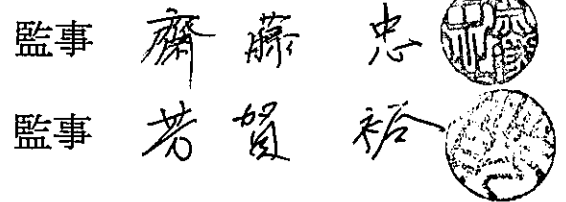 監事 齋藤 忠
監事 芳賀 裕